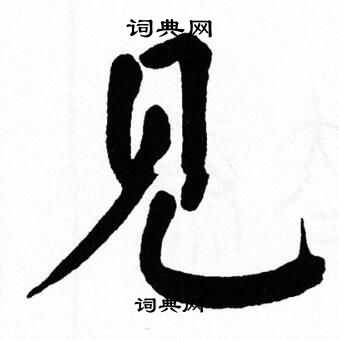 词典网
见
词典网